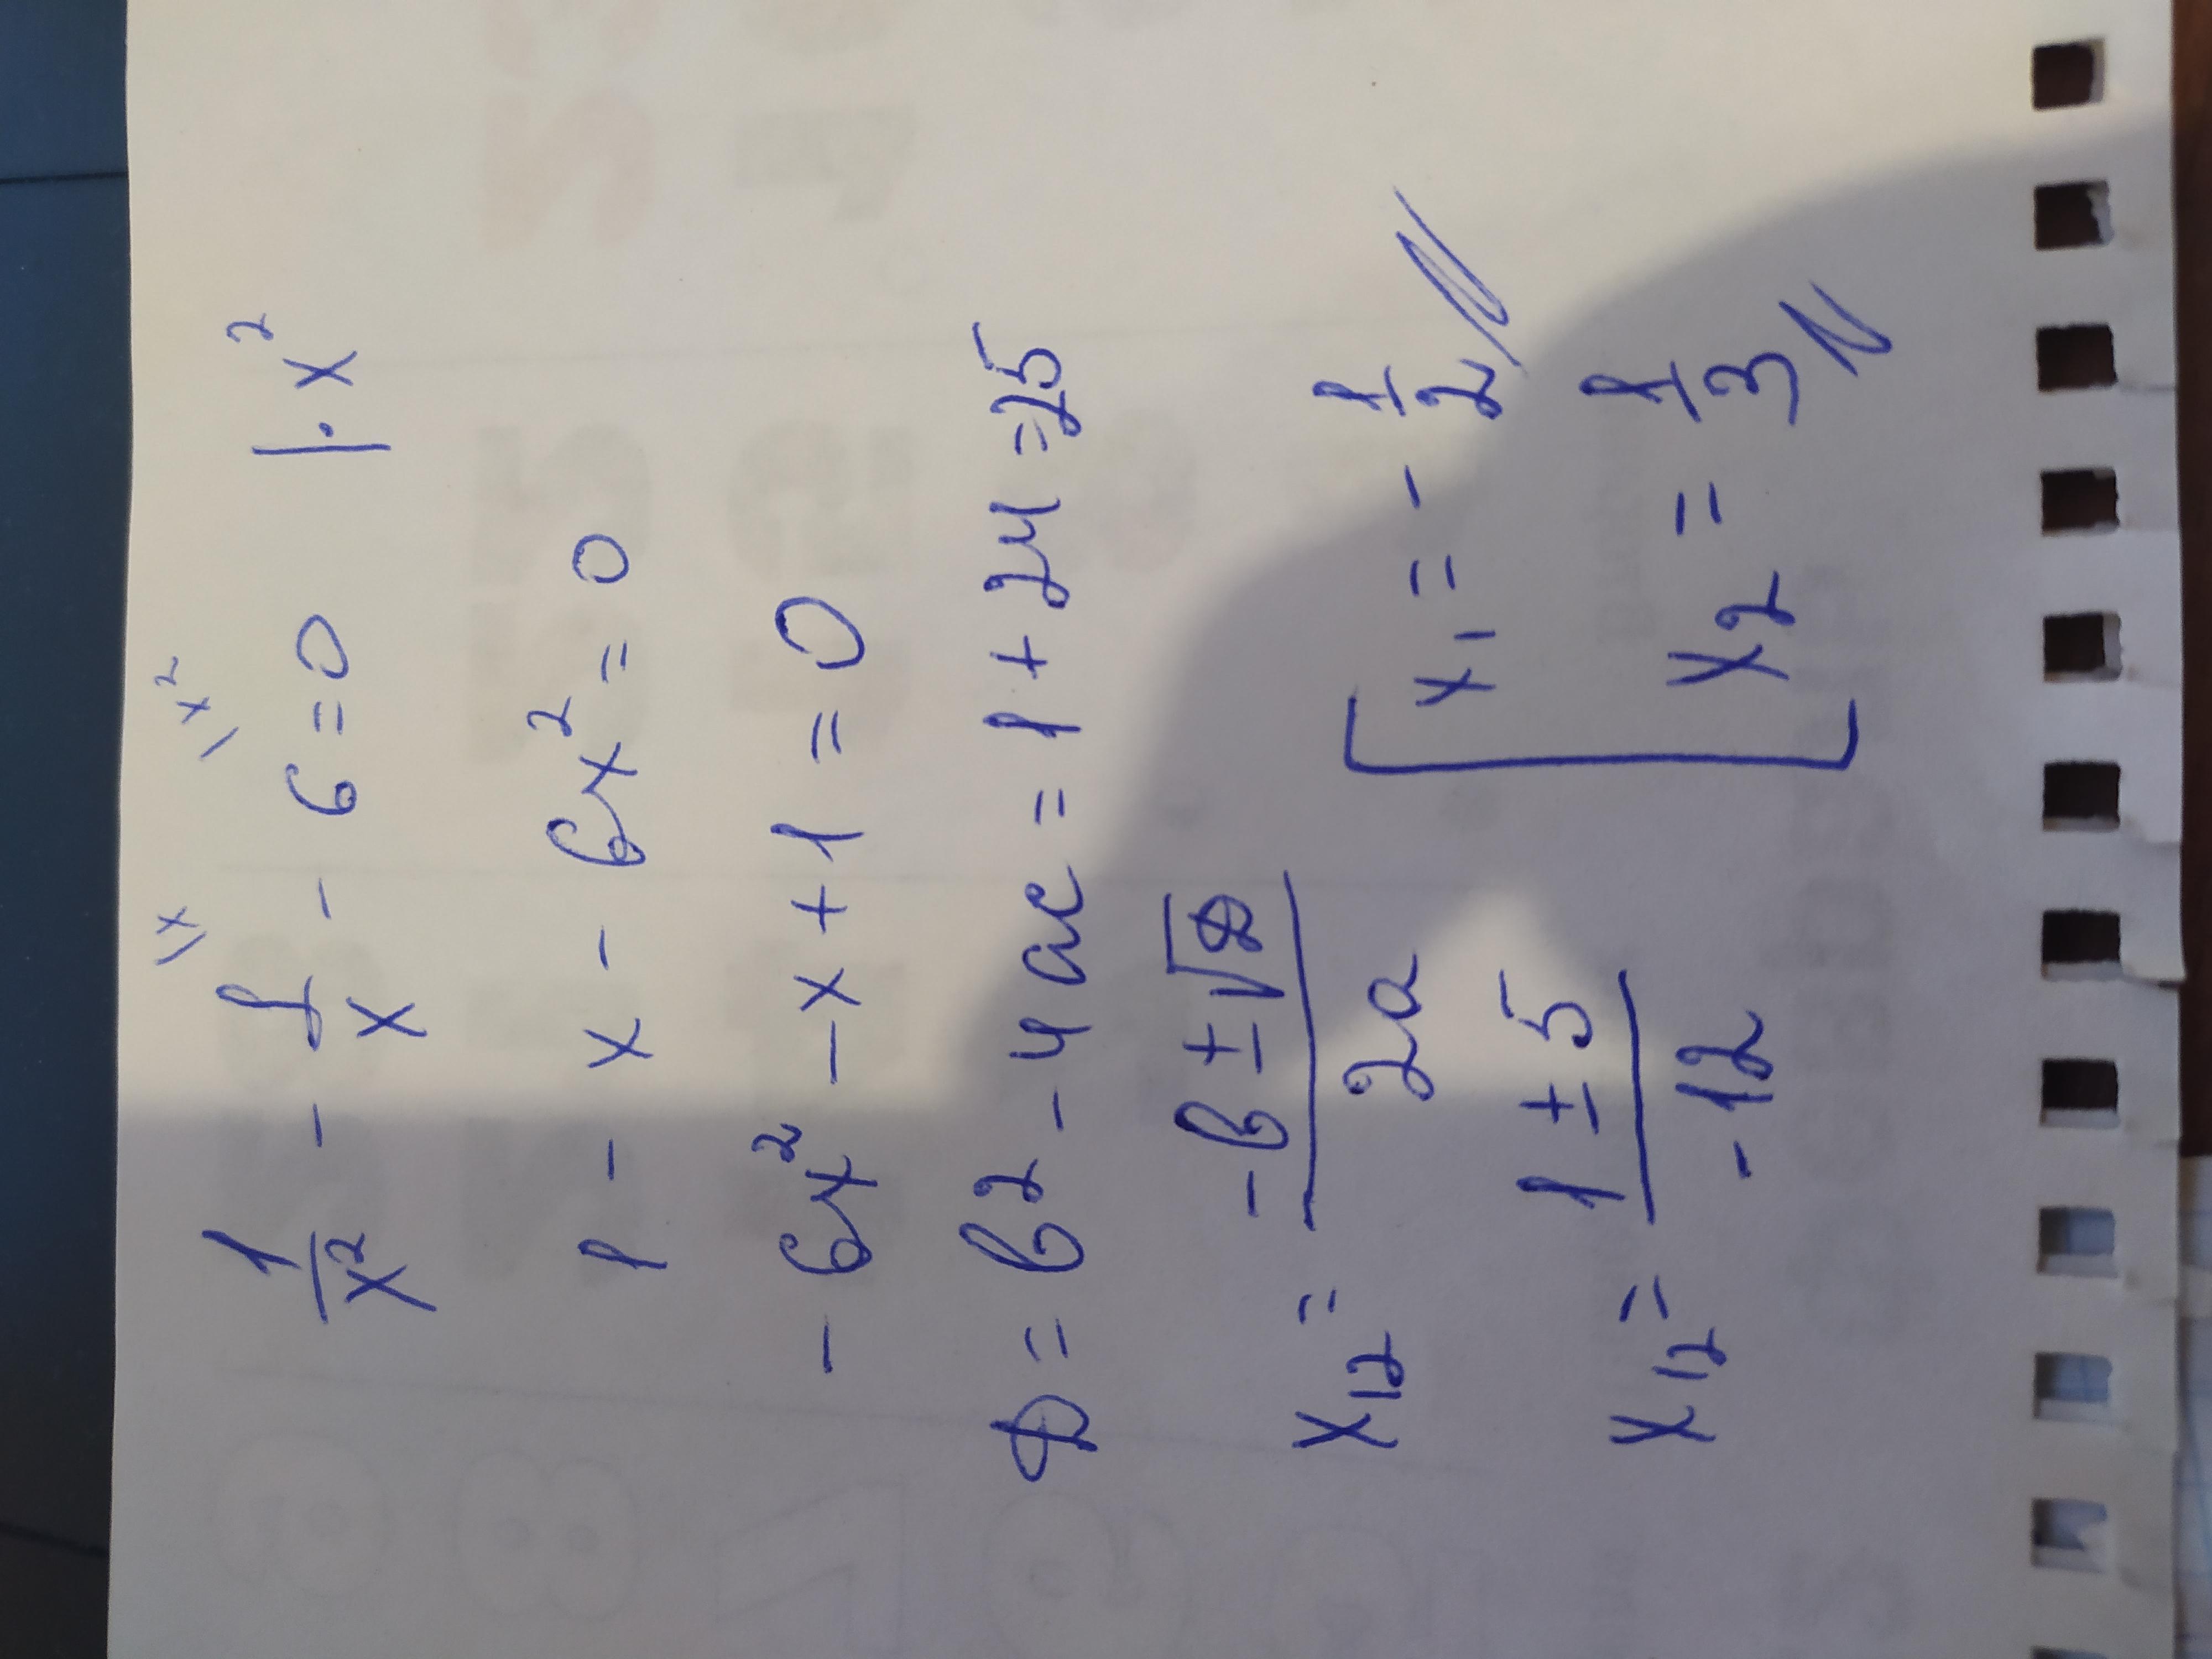 1/x² - 1/x \x - 6 \x² = 0 |·x²
1 - x - 6x² = 0
-6x² - x + 1 = 0
D = b² - 4ac = 1 + 24 = 25
x₁₂ = (-b ± √D)/2a
x₁₂ = (1 ± 5)/-12
[ x₁ = - 1/2
x₂ = 1/3